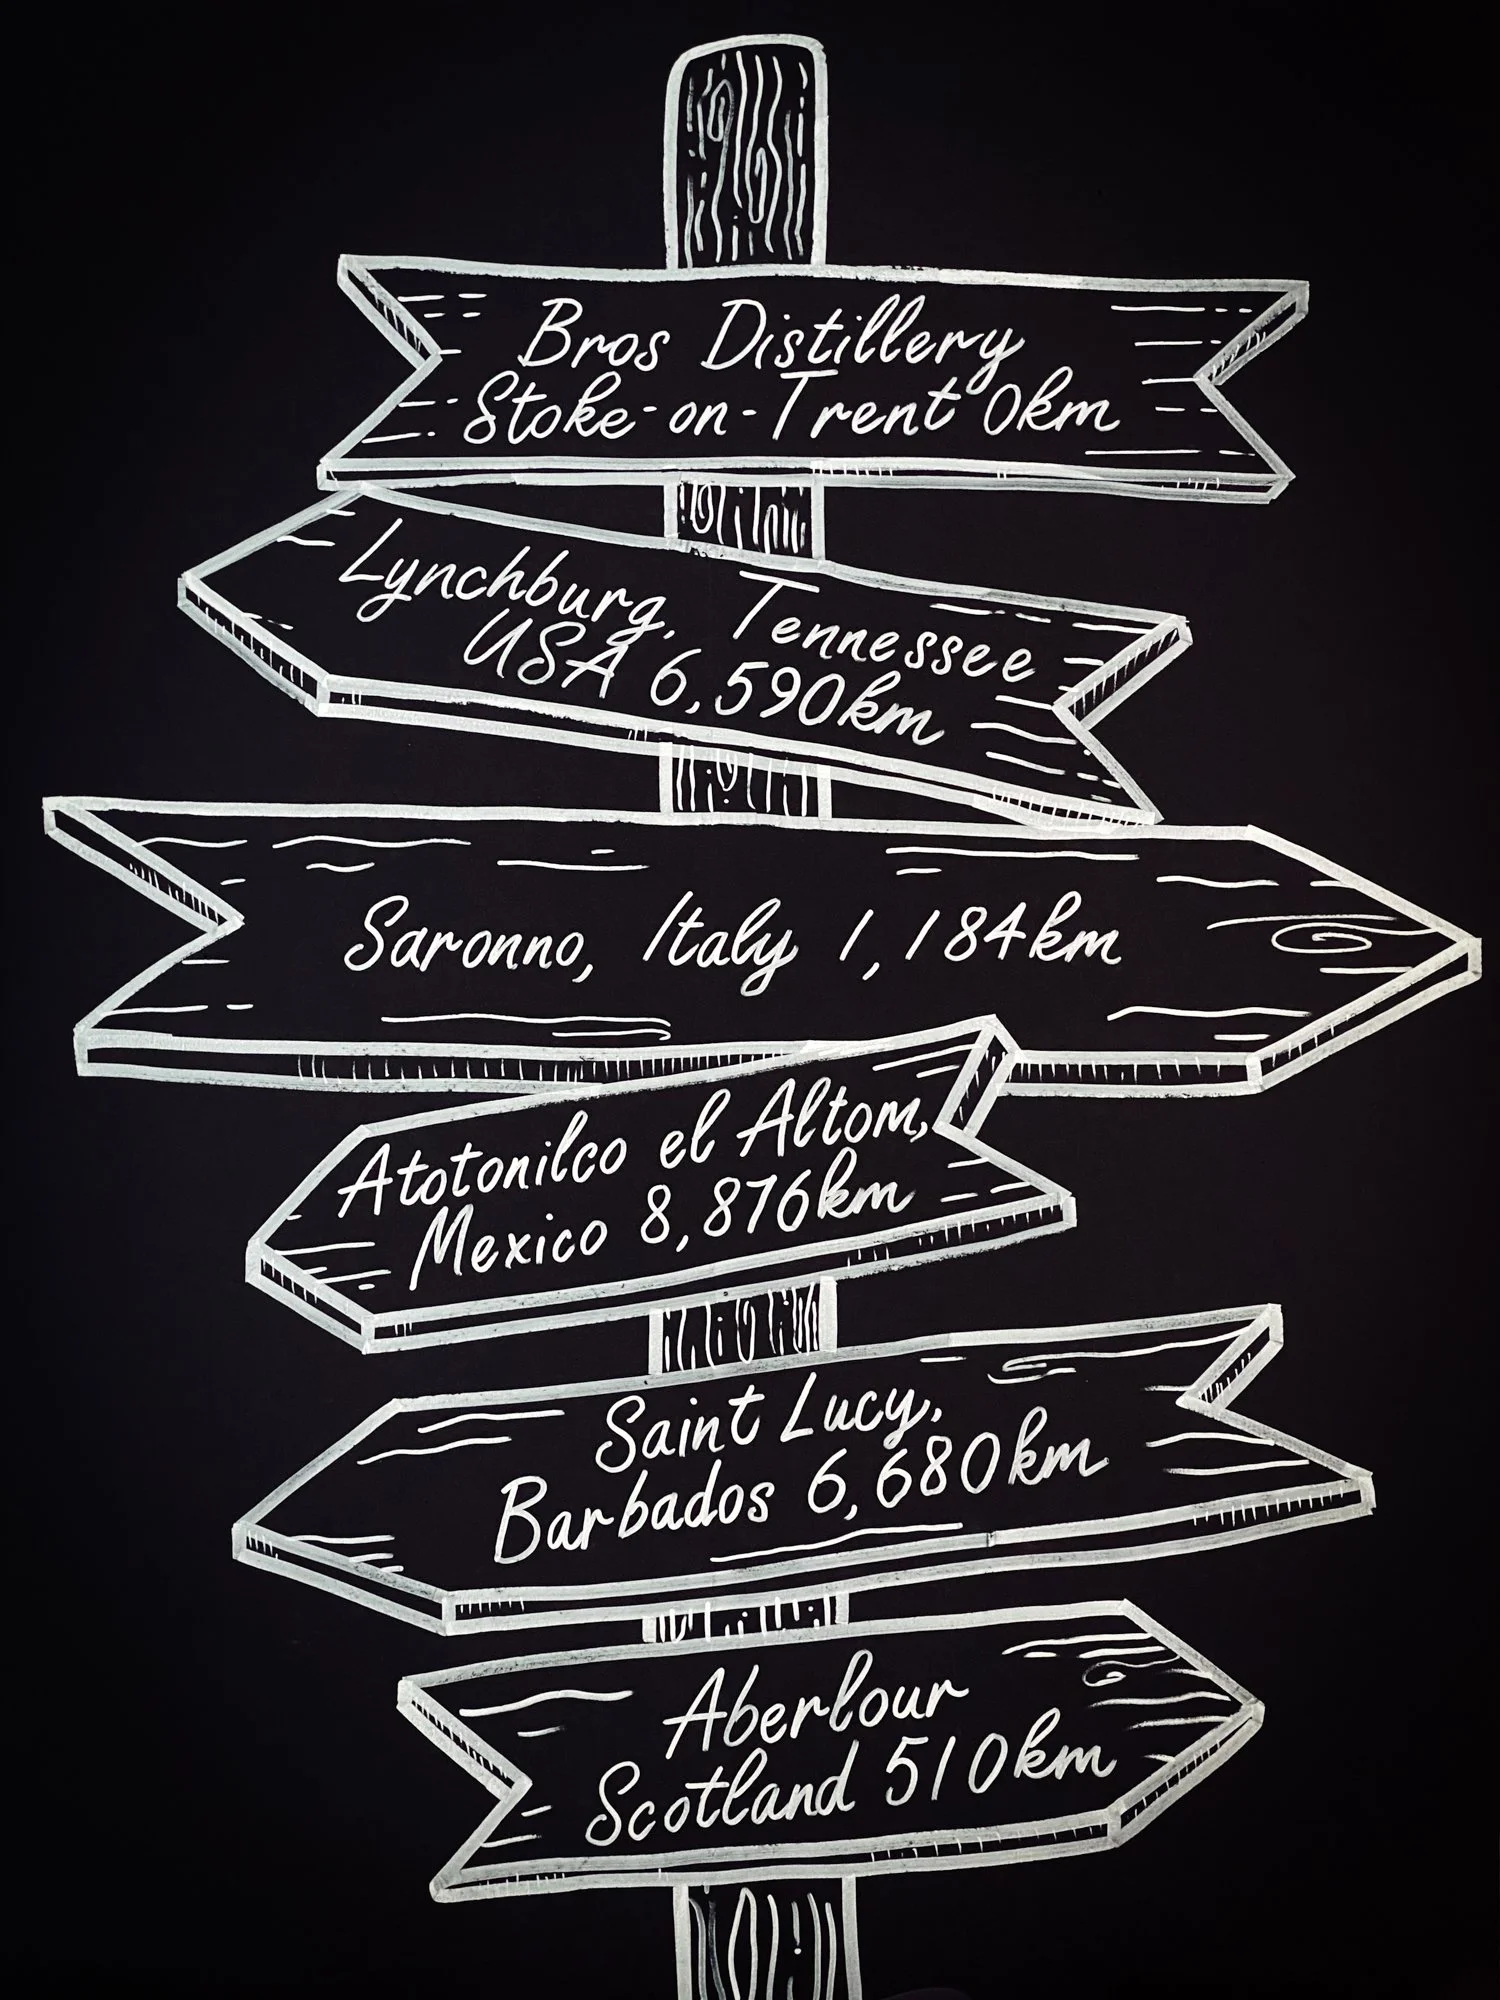 Bros Distillery
Stoke-on-Trent 0km
Lynchburg, Tennessee
USA 6,590km
Saronno, Italy 1,184km
Atotonilco el Altom,
Mexico 8,876km
Saint Lucy,
Barbados 6,680km
Aberlour
Scotland 510km